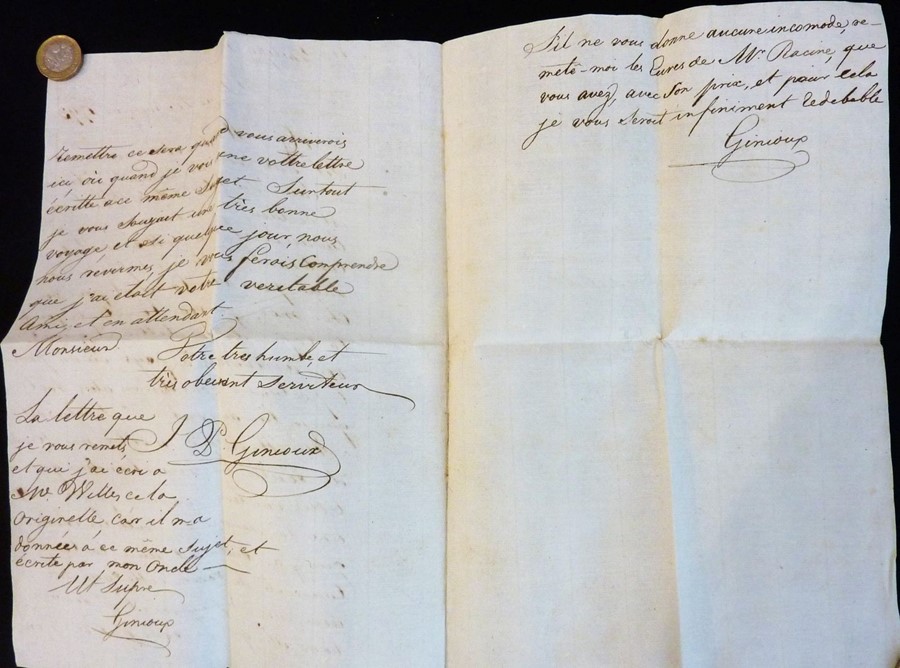 remettre ce sera quand vous arriverois
ici où quand je vous une vottre lettre
écritte a ce même Sujet. Surtout
je vous Souzait une très bonne
voyage et si quelque jour nous
nous révermes, je vous ferois Comprendre
que j'ai etait votre veritable
Ami, et en attendant.
Monsieur Votre tres humble, et
très obeisent Serviteur
J P. Ginioux
La lettre que
je vous remets
et que j'ai écri a
Mr. Willes ce la
originelle, car il m'a
données à ce même Sujet, et
écrite par mon Oncle
Ut Supre
Ginioux
S'il ne vous donne aucune incomode, re-
mete-moi les Eures de Mr. Racine, que
vous avez, avec Son prix, et pour cela
je vous Seroit infiniment redebable
Ginioux